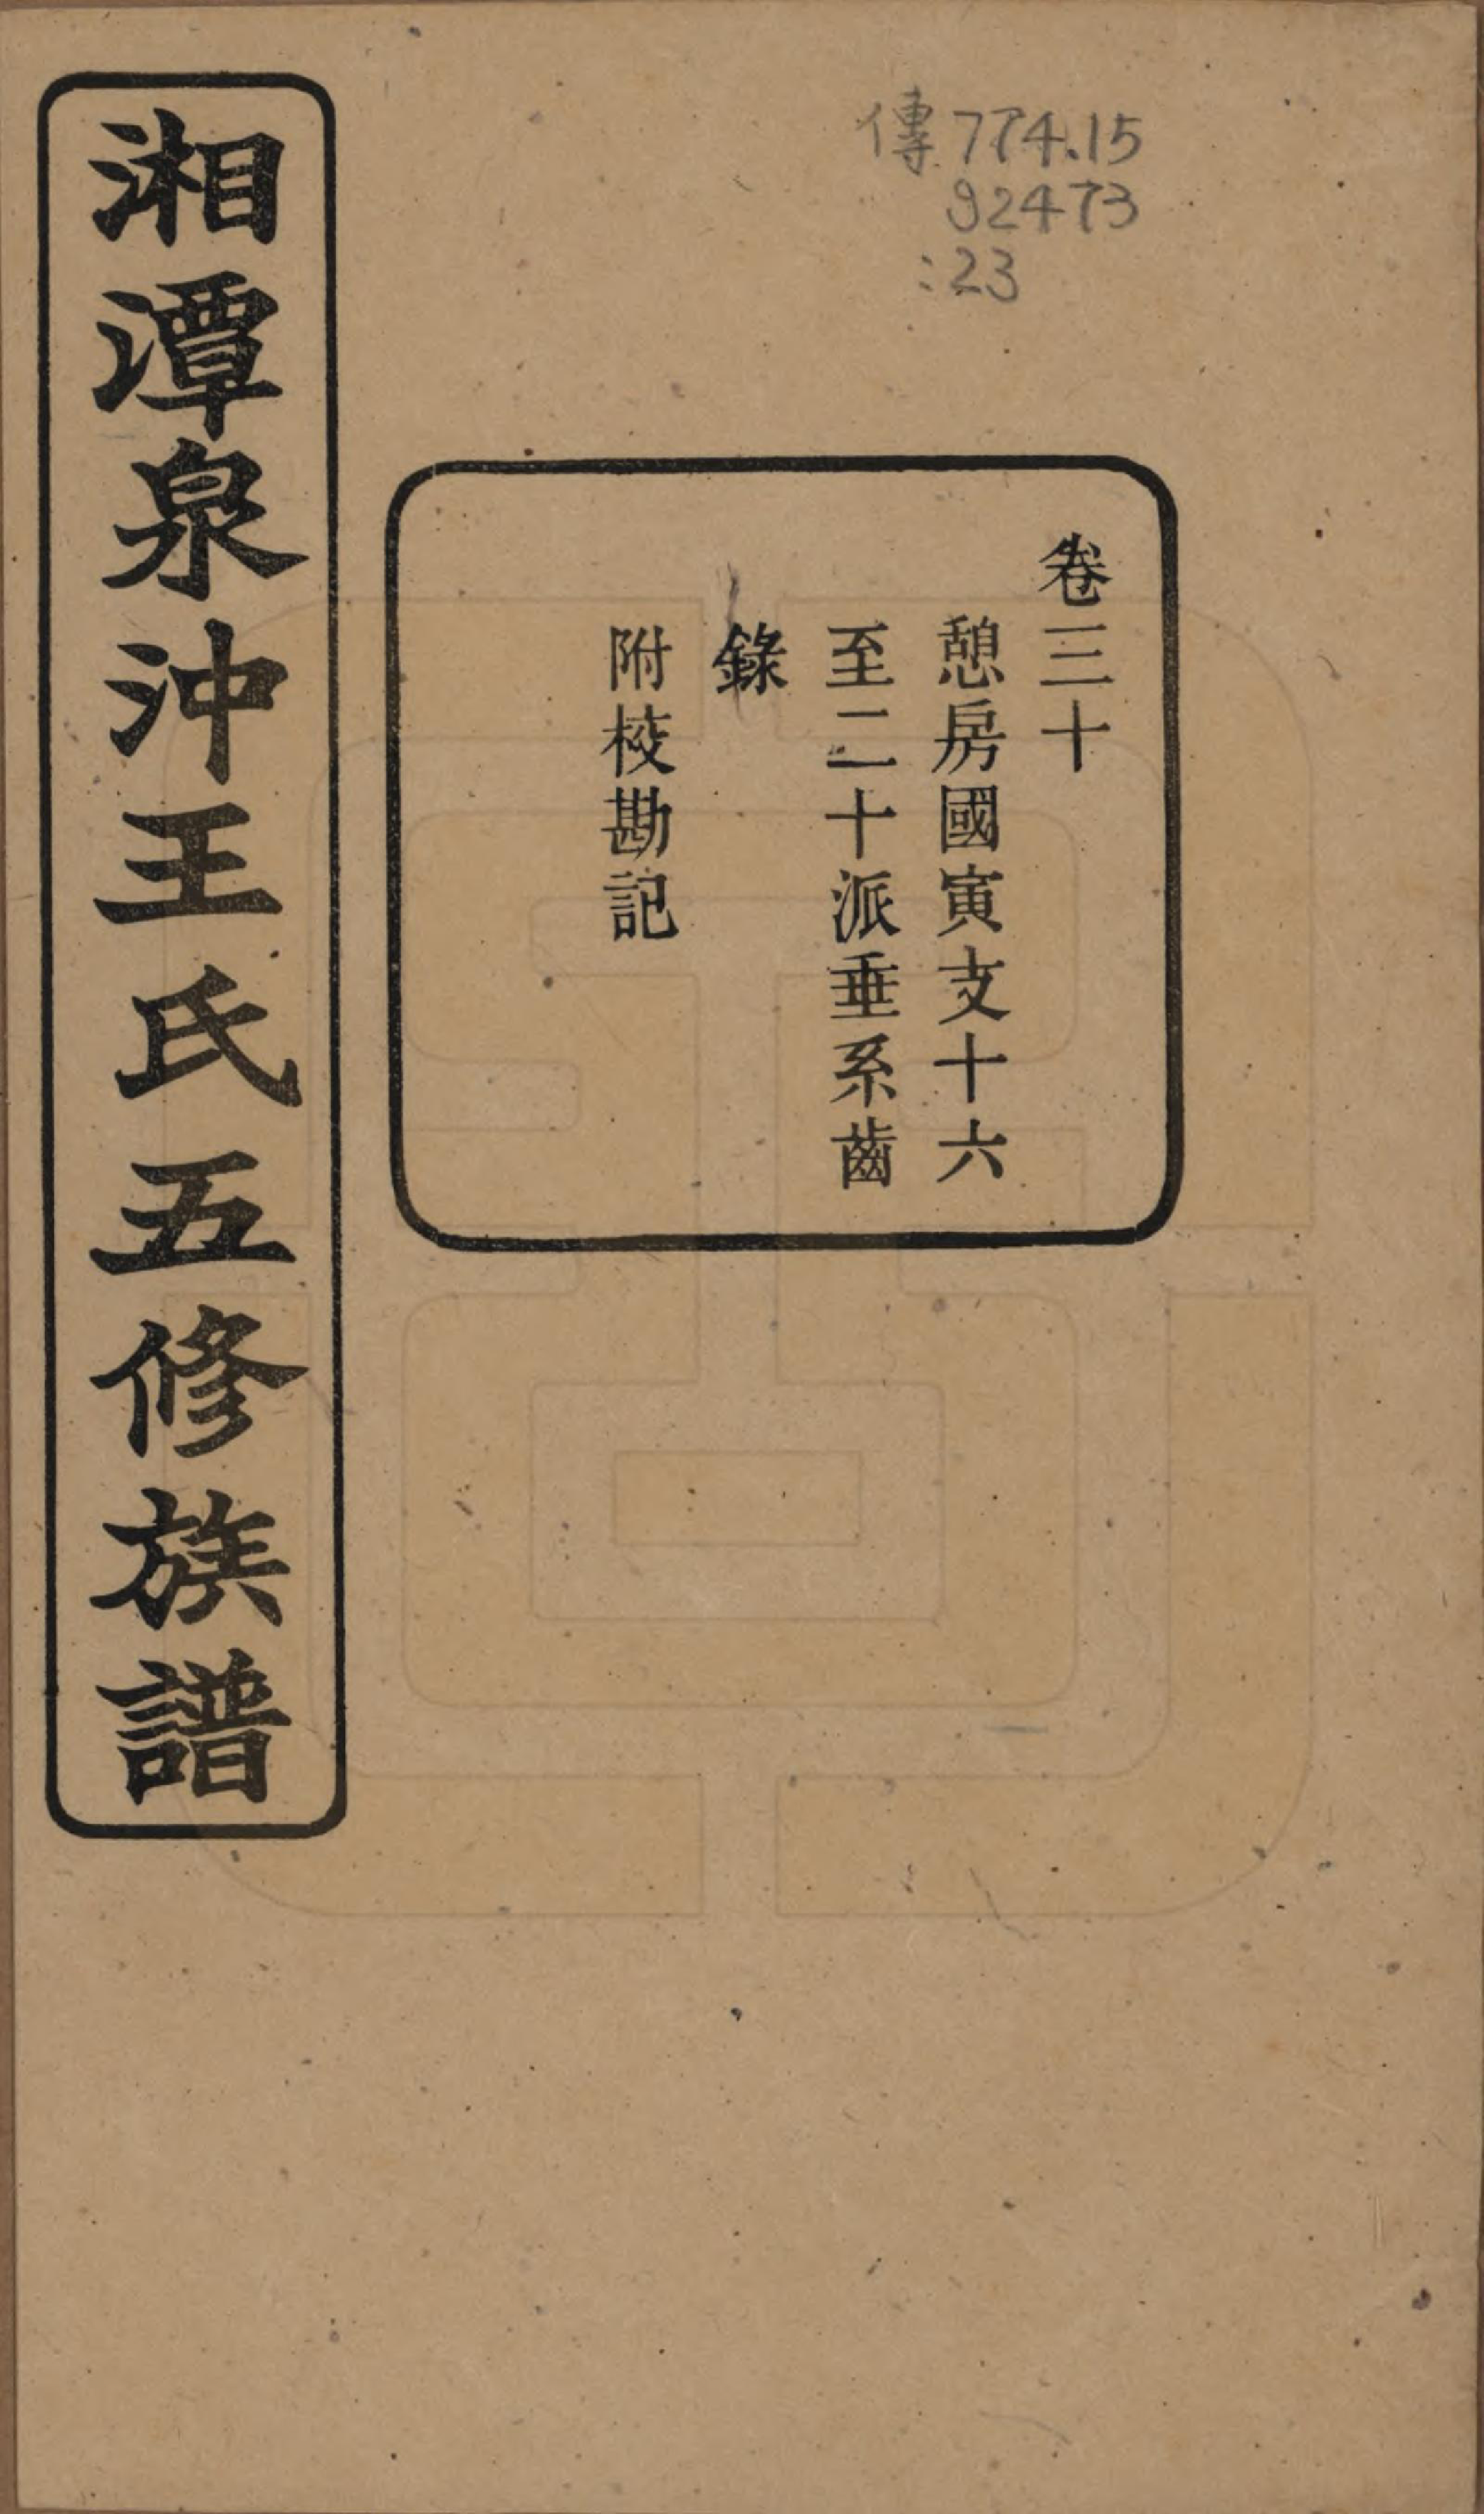 傳 774.15
92473
:23
卷三十
憩房國寅支十六
至二十派垂系齒
錄
附校勘記
湘潭泉沖王氏五修族譜